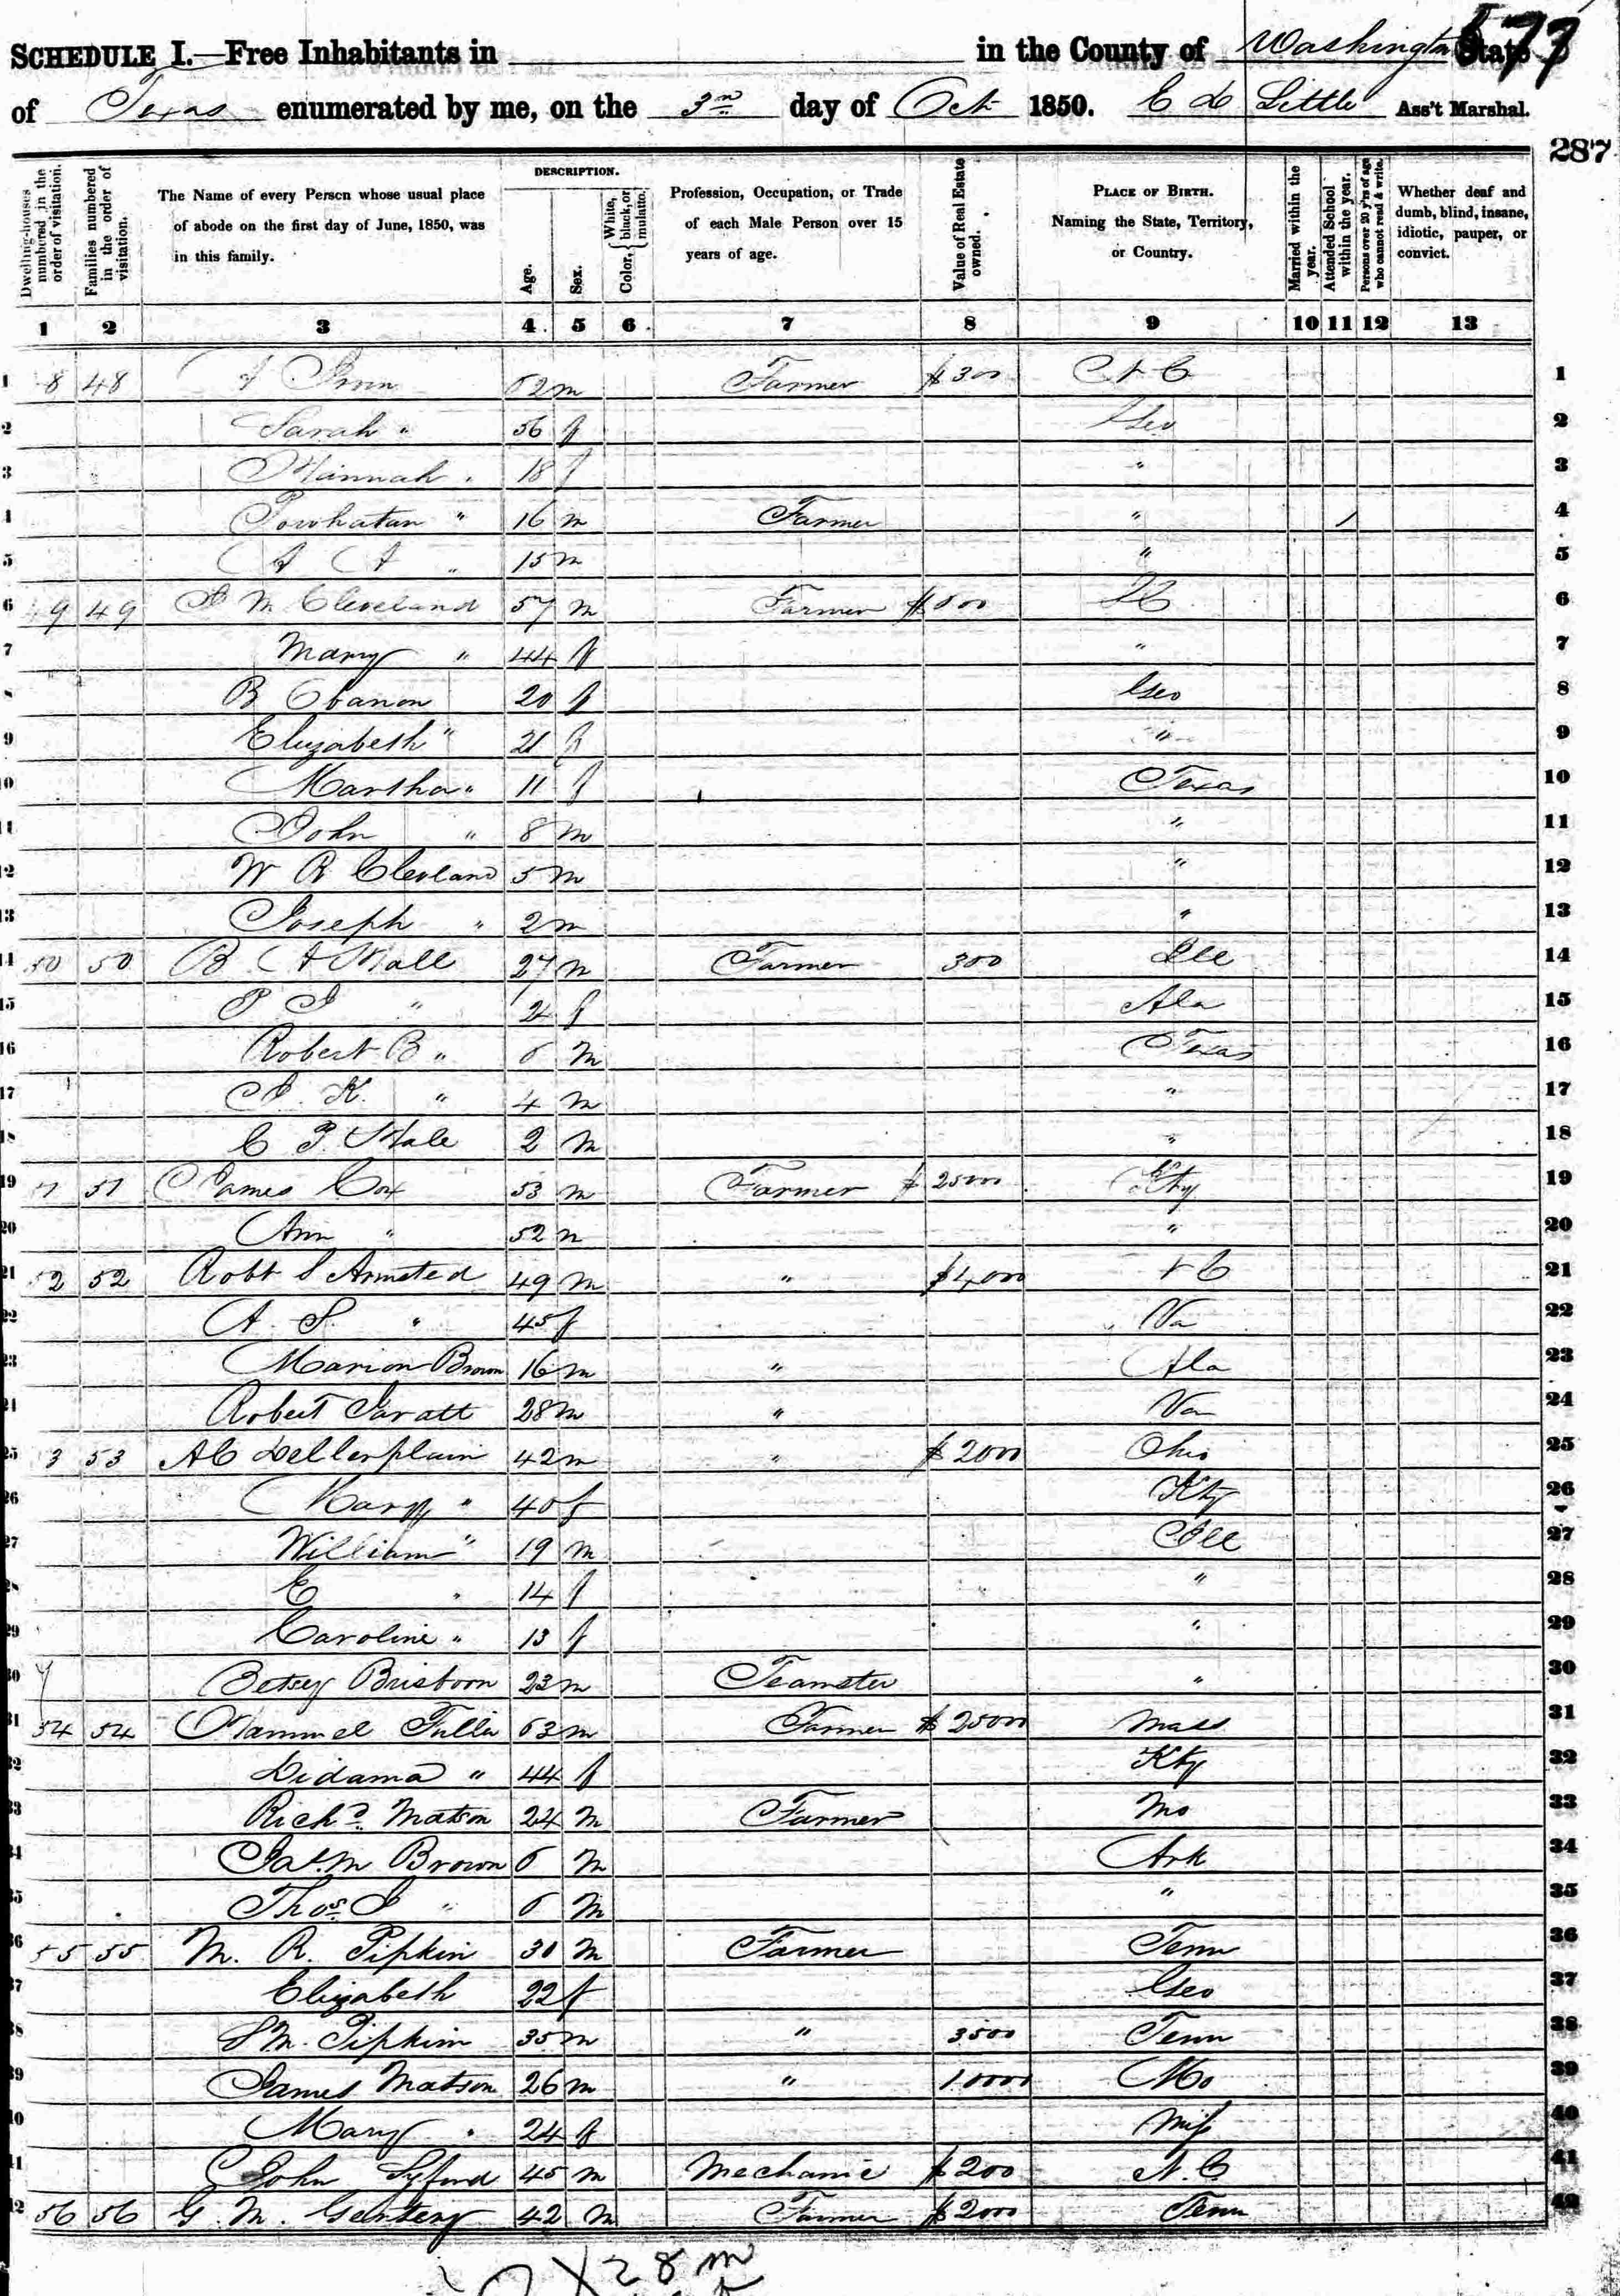 577
SCHEDULE I.—Free Inhabitants in in the County of Washington State
of Texas enumerated by me, on the 3rd day of Oct 1850. Little Ass't Marshal.
287
Dwelling-houses numbered in the order of visitation.
Families numbered in the order of visitation.
The Name of every Person whose usual place of abode on the first day of June, 1850, was in this family.
DESCRIPTION.
Age.
Sex.
Color, { White, black, or mulatto.
Profession, Occupation, or Trade of each Male Person over 15 years of age.
Value of Real Estate owned.
PLACE OF BIRTH. Naming the State, Territory, or Country.
Married within the year.
Attended School within the year.
Persons over 20 y'rs of age who cannot read & write.
Whether deaf and dumb, blind, insane, idiotic, pauper, or convict.
1 2 3 4 5 6 7 8 9 10 11 12 13
1 8 48 m Farmer $300 N C 1
2 Sarah " 56 f Geo 2
3 Hannah " 18 f " 3
4 Powhatan " 16 m Farmer " / 4
5 A A " 15 m " 5
6 49 49 M Cleveland 57 m Farmer $500 6
7 Mary " 44 f " 7
8 B Obanon 20 f Geo 8
9 Elizabeth " 21 f " 9
10 Martha " 11 f Texas 10
11 John " 8 m " 11
12 W R Clevland 5 m " 12
13 Joseph " 2 m " 13
14 50 50 B A Hall 27 m Farmer 300 Ill 14
15 " f Ala 15
16 Robert B " 6 m Texas 16
17 K. " 4 m " 17
18 C P. Hale 2 m " 18
19 51 51 James Cox 53 m Farmer $ 25000 Kty 19
20 Ann " 52 m " 20
21 52 52 Robt S Armsted 49 m " $4,000 N C 21
22 A. S. " 45 f Va 22
23 Marion Brown 16 m " Ala 23
24 Robert Garatt 28 m " Va 24
25 3 53 AC Dellerplain 42 m " $2000 Ohio 25
26 Mary " 40 f Kty 26
27 William " 19 m Ill 27
28 E " 14 f " 28
29 Caroline " 13 f " 29
30 Betsey Brisboon 23 m Teamster " 30
31 54 54 Sammuel Fuller 63 m Farmer $25000 Mass 31
32 Didama " 44 f Kty 32
33 Richd Matson 24 m Farmer Mo 33
34 Jas. M Brown 6 m Ark 34
35 Thos J " 6 m " 35
36 55 55 M. R. Pipkin 30 m Farmer Tenn 36
37 Elizabeth 22 f Geo 37
38 S M. Pipkin 35 m " 3500 Tenn 38
39 James Matson 26 m " 10000 Mo 39
40 Mary " 24 f Miss 40
41 John 45 m Mechanic $200 N. C 41
42 56 56 G. M. Gentery 42 m Farmer $2000 Tenn 42
28 m